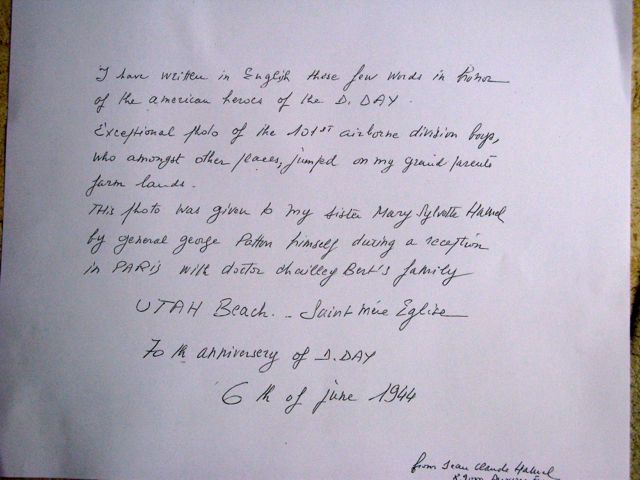 I have written in English these few words in honor
of the american heroes of the D. DAY.
Exceptional photo of the 101ST airborne division boys,
who amongst other places, jumped on my grand parents
farm lands.
This photo was given to my sister Mary Sylvette Hamel
by general george Patton himself during a reception
in PARIS with doctor chailley Bert's family
UTAH Beach. _ Saint Mère Eglise
70 th anniversery of D.DAY
6 th of june 1944
from Jean Claude Hamel